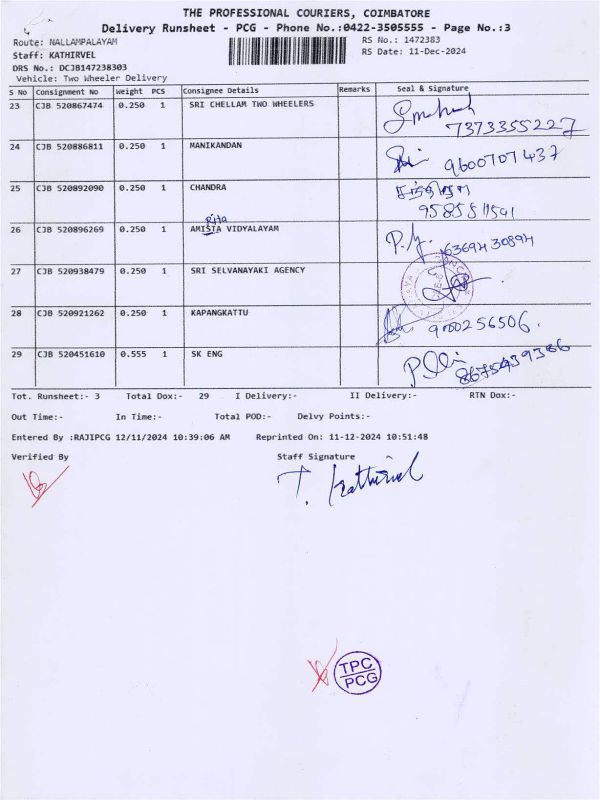 THE PROFESSIONAL COURIERS, COIMBATORE
Delivery Runsheet - PCG - Phone No.:0422-3505555 - Page No.:3
Route: NALLAMPALAYAM
RS No.: 1472383
Staff: KATHIRVEL
RS Date: 11-Dec-2024
DRS No.: DCJB147238303
Vehicle: Two Wheeler Delivery
S No Consignment No Weight PCS Consignee Details Remarks Seal & Signature
23 CJB 520867474 0.250 1 SRI CHELLAM TWO WHEELERS
7373355227
24 CJB 520886811 0.250 1 MANIKANDAN
9600707437
25 CJB 520892090 0.250 1 CHANDRA சந்திரா
9585511591
26 CJB 520896269 0.250 1 AMISTA VIDYALAYAM
27 CJB 520938479 0.250 1 SRI SELVANAYAKI AGENCY
28 CJB 520921262 0.250 1 KAPANGKATTU
29 CJB 520451610 0.555 1 SK ENG
Tot. Runsheet:- 3 Total Dox:- 29 I Delivery:- II Delivery:- RTN Dox:-
Out Time:- In Time:- Total POD:- Delvy Points:-
Entered By :RAJIPCG 12/11/2024 10:39:06 AM Reprinted On: 11-12-2024 10:51:48
Verified By Staff Signature
T. Kathirvel
TPC
PCG